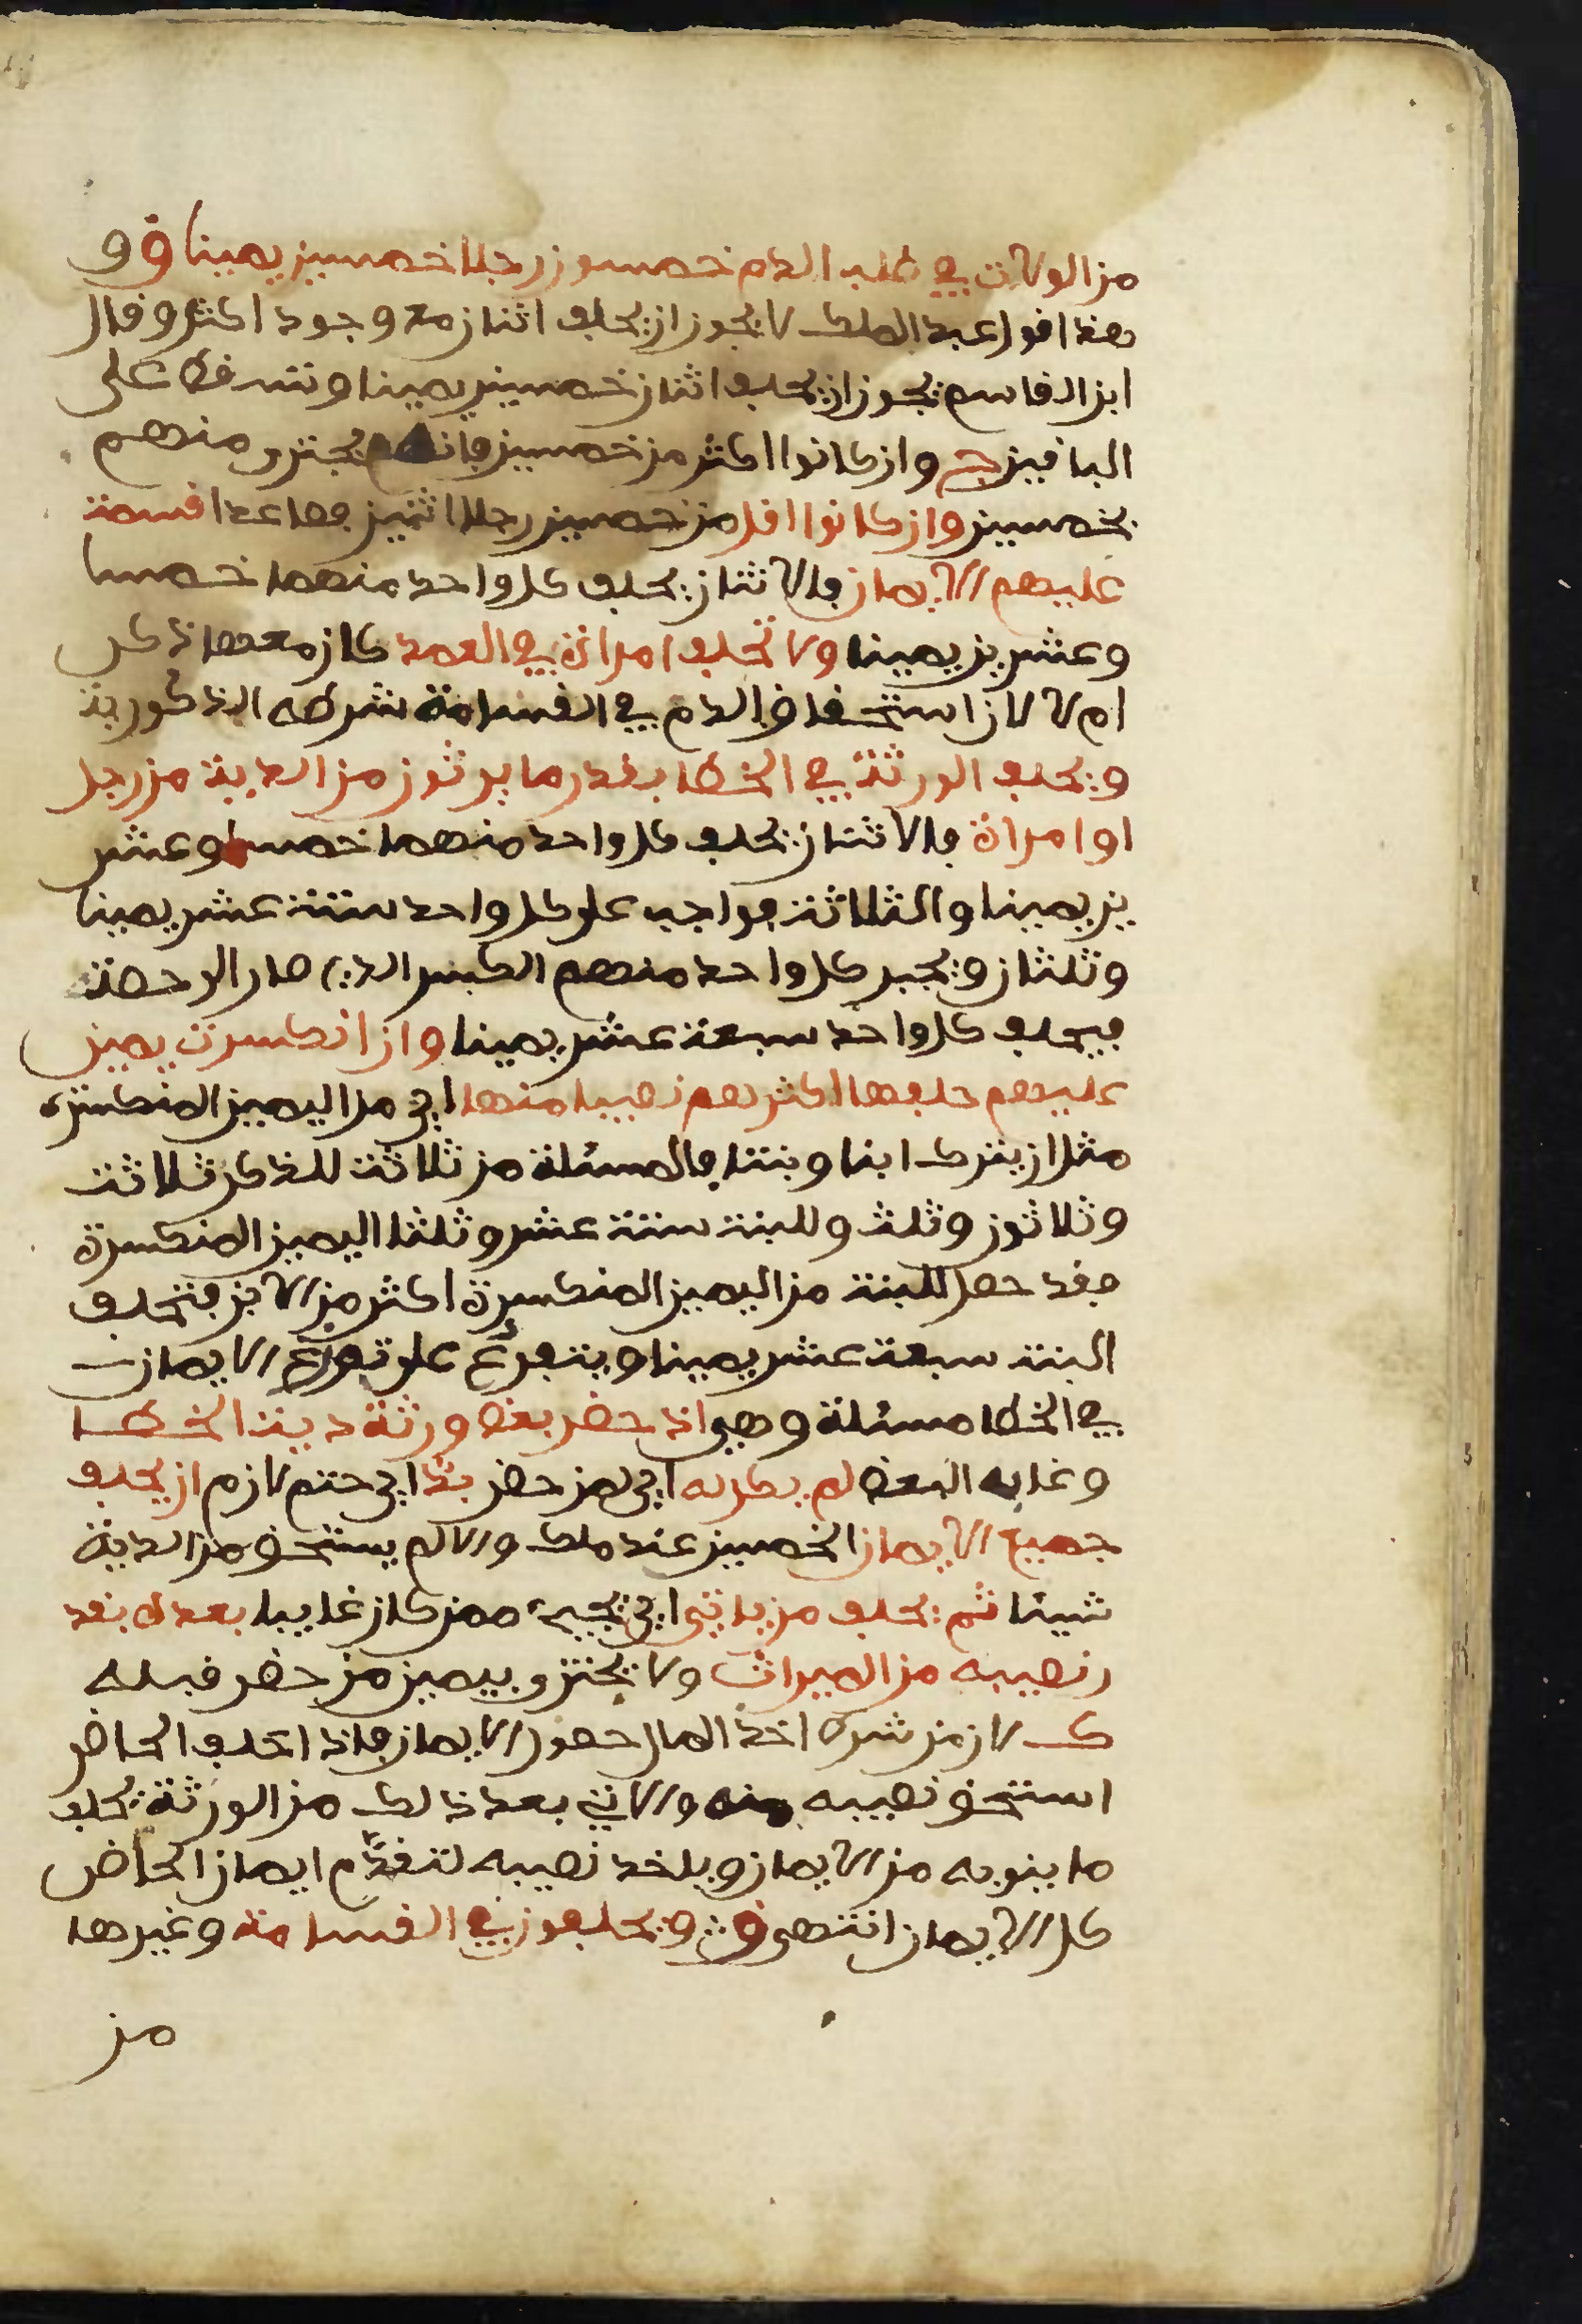 من الولات في طلب الدم خمسون رجلا خمسين يمينا ق و
هذا قول عبد الملك لا يجوز ان يحلف اثنان مع وجود اكثر وقال
ابن القاسم يجوز ان يحلف اثنان خمسين يمينا وتسقط على
الباقين ج وان كانوا اكثر من خمسين فانهم يجتزو منهم
بخمسين وان كانوا اقل من خمسين رجلا اثنين فصاعدا قسمة
عليهم الايمان فالاثنان يحلف كل واحد منهما خمسا
وعشرين يمينا ولا تحلف امراة في العمد كان معها ذكر
ام لا لان استحقاق الدم في القسامة شرطه الذكورية
ويحلف الورثة في الخطا بقدر ما يرثون من الدية من رجل
او امراة فالاثنان يحلف كل واحد منهما خمسا وعشر
ين يمينا والثلاثة فواجب على كل واحد ستة عشر يمينا
وثلثان ويجبر كل واحد منهم الكسر الذي صار الى حصته
فيحلف كل واحد سبعة عشر يمينا وان انكسرت يمين
عليهم حلفها اكثرهم نصيبا منها اي من اليمين المنكسرة
مثل ان يترك ابنا وبنتا فالمسئلة من ثلاثة للذكر ثلاثة
وثلاثون وثلث وللبنت ستة عشر وثلثا اليمين المنكسرة
فقد حصل للبنت من اليمين المنكسرة اكثر من الابن فتحلف
البنت سبعة عشر يمينا ويتفرع على توزع الايمان
في الخطا مسئلة وهي اذ حضر بعض ورثة دية الخطا
وغاب البعض لم يكن له اي لمن حضر بد اي حتم لازم ان يحلف
جميع الايمان الخمسين عند ملك والا لم يستحق من الدية
شيئا ثم يحلف من ياتي اي يجيء ممن كان غايبا بعده بقد
ر نصيبه من الميراث ولا يجتزو بيمين من حضر قبله
ك لان من شرط اخذ المال حصور الايمان فاذا حلف الحاضر
استحق نصيبه منه والاتي بعد ذلك من الورثة يحلف
ما ينوبه من الايمان وياخذ نصيبه لتقدم ايمان الحاضر
كل الايمان انتهى ق ش ويحلفون في القسامة وغيرها
من